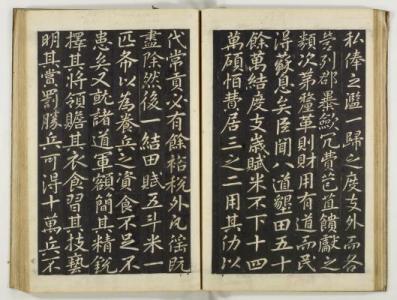 私俸之濫一歸之度支外而各
營列郡暴斂冗費苞苴饋獻之
類次第釐革則財用有道而民
淂蘇息矣臣聞八道墾田五十
餘萬結度支歲賦米不下十四
萬碩恒費居三之二用其仂以
代常貢必有餘裕稅外凡徭既
盡除然後一結田賦五斗米一
匹布以為養兵之資食不足不
患矣又就諸道軍額簡其精銳
擇其將領贍其衣食習其技藝
明其賞罰勝兵可得十萬兵不